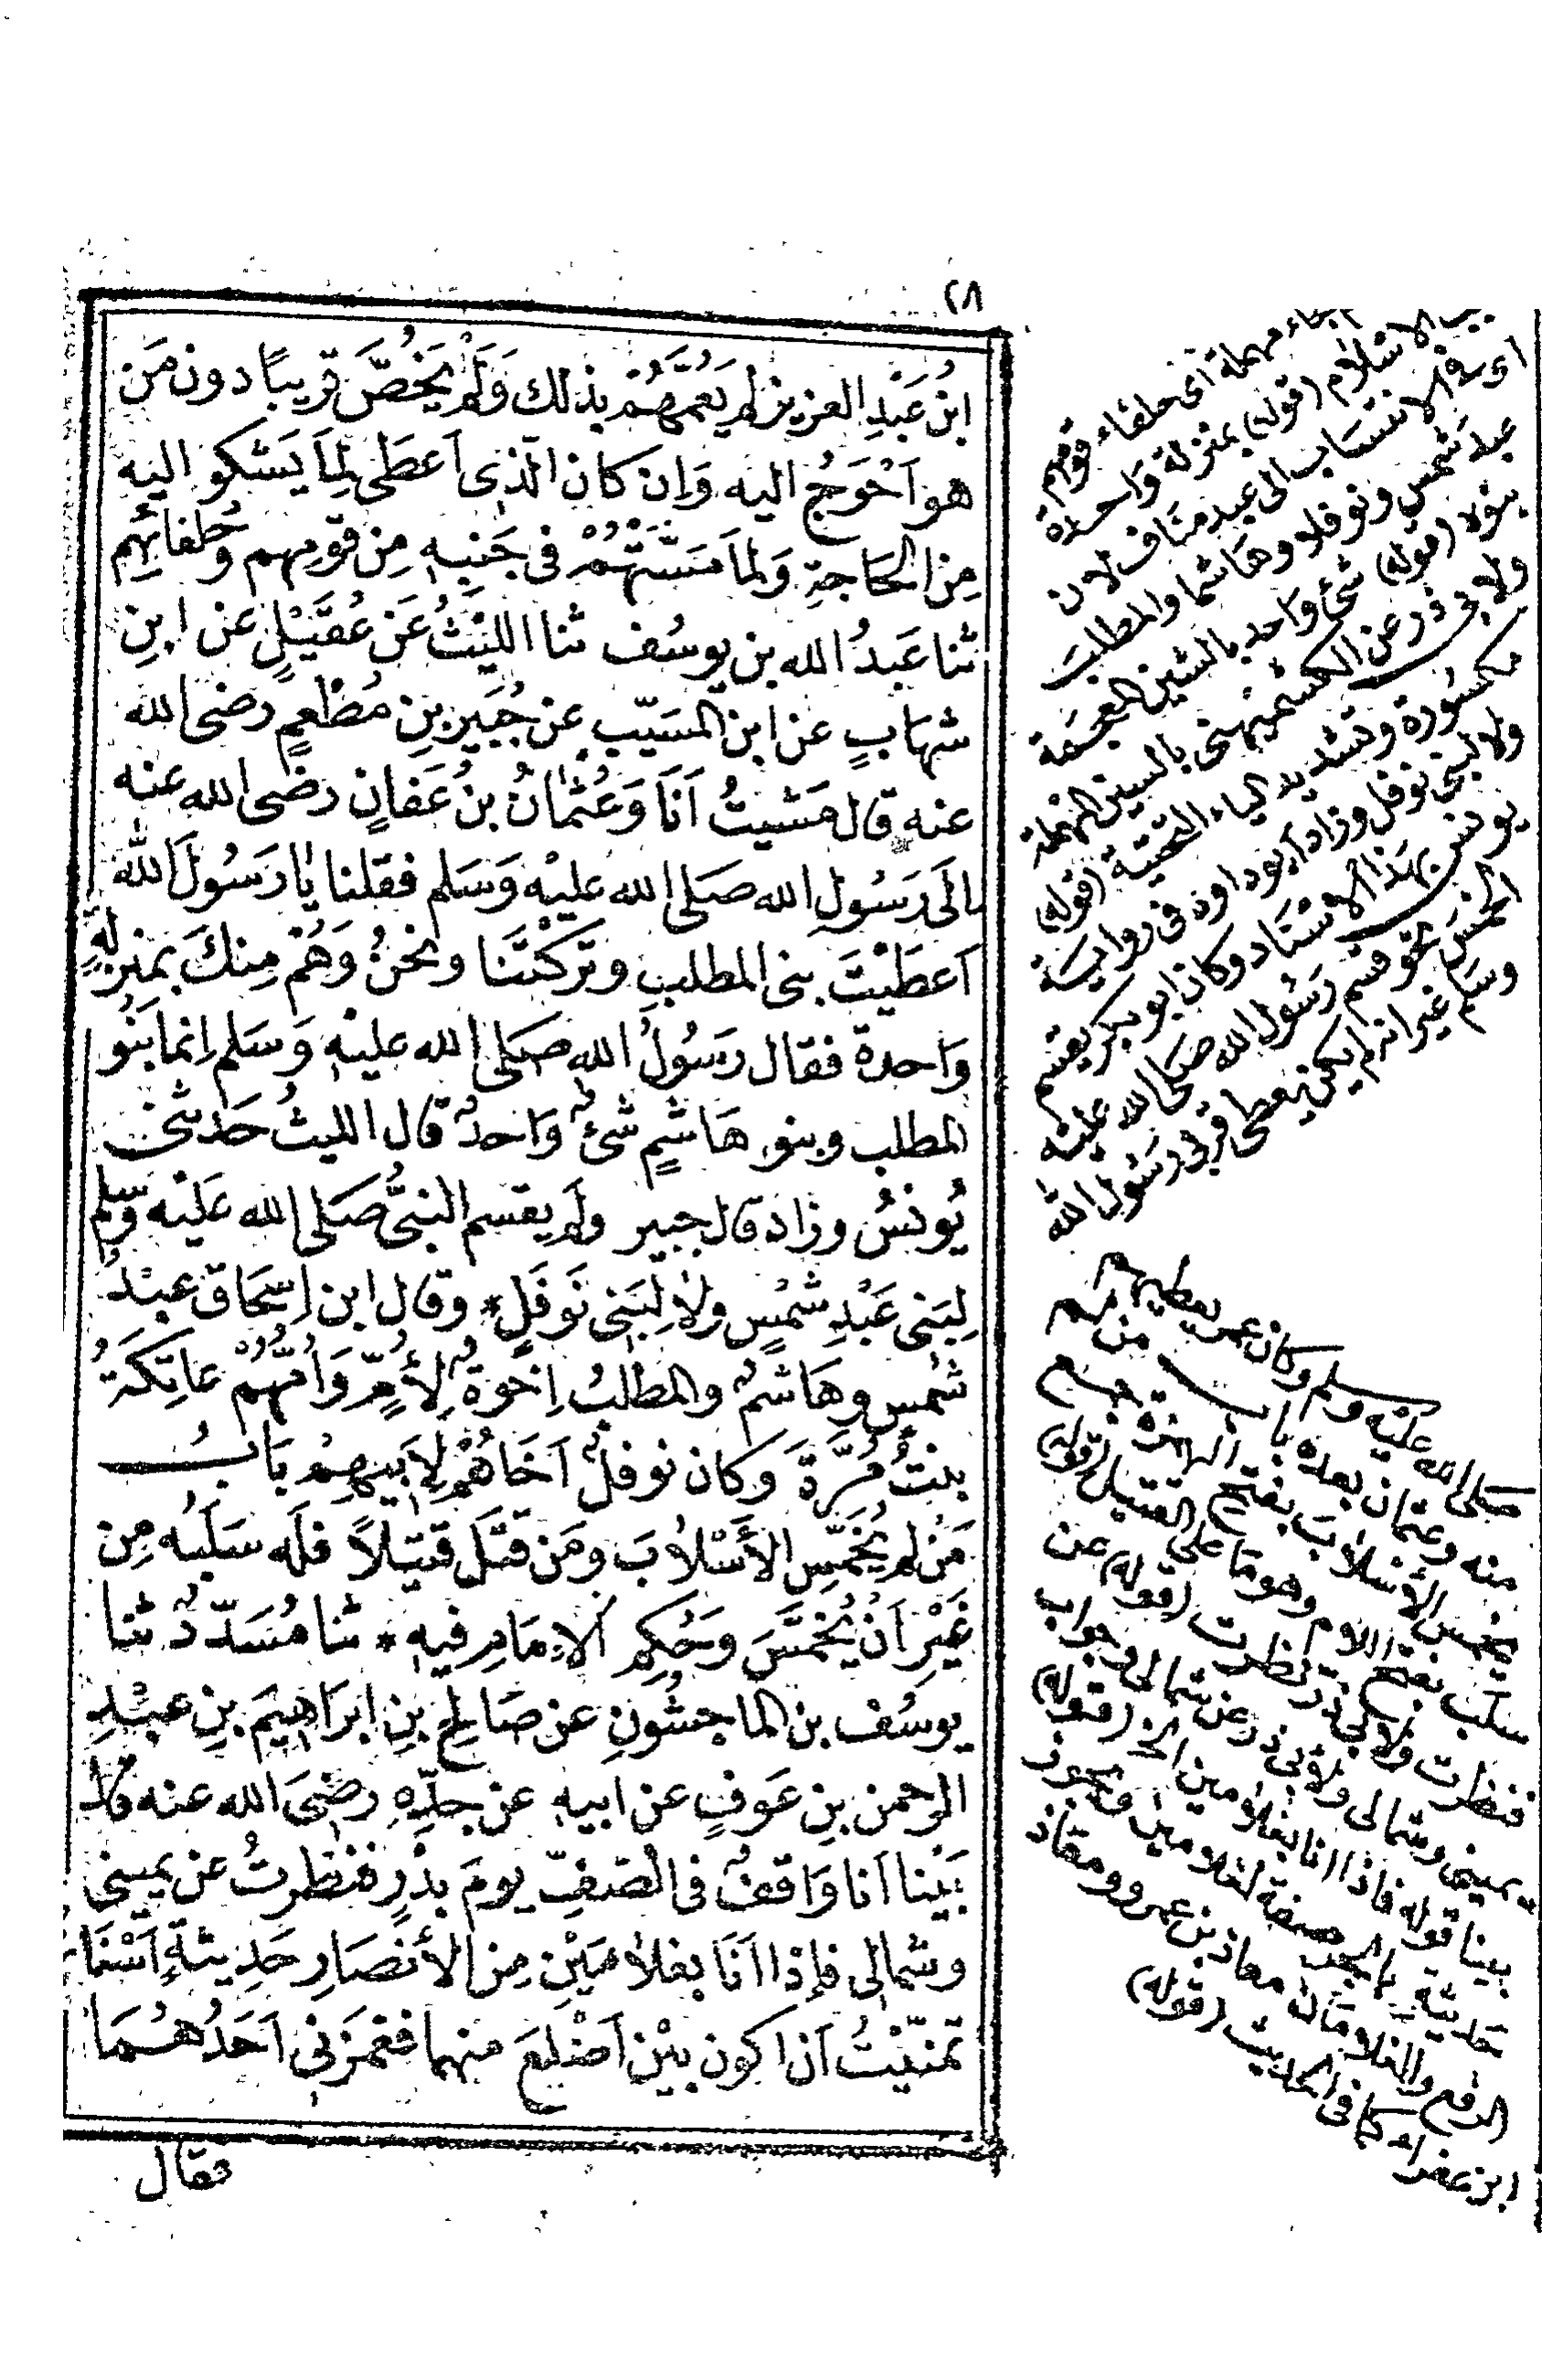 ٢٨
ابنُ عَبْدِ العزيز لم يَعُمَّهُمْ بذلك وَلَمْ يَخُصَّ قريبًا دون مَن
هو اَحْوَجُ اليه وَاِن كان الّذى اَعطَى لِمَا يَشكو اليه
مِن الحَاجةِ وَلما مَسَّتْهُمْ فى جَنبِه مِن قومِهم وحُلفائِهِم
ثنا عَبدُ الله بن يوسُف ثنا الليْثُ عَن عُقَيْلٍ عن ابنِ
شهَابٍ عن ابن المسَيّبِ عن جُبَيرِ بنِ مُطْعِمٍ رضى الله
عنه قال مَشيتُ اَنَا وَعُثمَانُ بنُ عَفانٍ رضى الله عنه
الَى رَسُولِ الله صَلى الله عليْه وَسَلم فقلنا يٰا رَسُولَ الله
اَعطَيْتَ بنى المطلبِ وتَرَكْتَنا ونحنُ وَهُمْ مِنكَ بمنزلةٍ
وَاحدة فقال رسَوُلُ الله صَلى الله عليْه وَسَلم اِنما بَنُو
المطلب وبنو هَاشمٍ شئٌ وَاحدٌ قال الليثُ حَدثنى
يُونسُ وزاد قال جبير ولَم يقسم النبىُّ صَلى الله عَليْه وَسَلم
لِبَنى عَبْدِ شمْسٍ ولاٰ لِبَنى نَوفَلٍ * وقال ابن اِسحَاق عبْدُ
شمْسٍ وهَاشمٌ والمطلبُ اِخوةٌ لِأُمٍّ وَأُمُّهُمْ عاتِكَةُ
بنتُ مُرَّةَ وكان نوفلٌ اَخَاهُمْ لِاَبيهِمْ بَابُ
مَنْ لم يُخَمّسِ الأَسْلاٰبَ ومَن قتَلَ قتيلاً فلَه سَلَبُه مِن
غَيْرِ اَنْ يُخمَّسَ وَحُكمِ الاِمَامِ فيه * ثنا مُسَدّدٌ ثنا
يوسُف بن الماجشُونِ عن صَالحِ بنِ ابرَاهيمَ بنِ عبْدِ
الرحمن بنِ عَوفٍ عن ابيه عن جدِّهِ رضىَ الله عنه قال
بَيْنا اَنا وَاقفٌ فى الصَّفِّ يومَ بدْرٍ فنظرتُ عن يمينى
وشمالى فاِذا اَنَا بغلاٰمَيْنِ مِن الأنصَارِ حَدِيثةٍ اَسْنَا
تمنيْتُ اَن اكون بيْن اَضْلعَ منهما فغمزَنى اَحَدُهُمَا
فقال
مهملة اى حلفاء قومهم
الاسلام (قوله) بمنزلة واحدة
اى فى الانتسَاب الى عبد منَاف لان
عبد شمس ونوفلا وهاشما والمطلب
بنوه (قوله) شئ واحد بالشين المعجمة
ولابى ذر عن الكشميهنى بالسين المهملة
مكسورة وتشديد الياء التحتية (قوله)
ولا لبنى نوفل وزاد ابو داود فى رواية
يونس بهذا الاسناد وكان ابو بكر يقسم
الخمس نحو قسم رسُول الله صلى الله عليه
وسلم غير انه لم يكن يعطى قربى رسُول الله
صلى الله عليه وسلم وكان عمر يعطيهم
منه وعثمان بعده باب من لم
يخمس الأسلاب بفتح الهمزة جمع
سلب بفتح اللام وهو ما على القتيل (قوله)
فنظرت ولابى ذر نظرت (قوله) عن
يمينى وشمالى ولابى ذر عن شمالى وجواب
بينا قوله فاذا انا بغلامين الخ (قوله)
حديثة بالجر صفة لغلامين ويجوز
الرفع والغلامان معاذ بن عمرو ومعاذ
ابن عفراء كما فى الحديث (قوله)